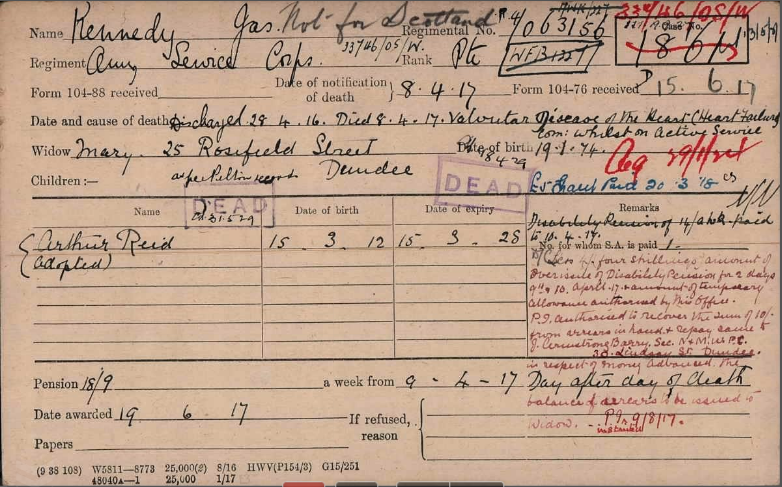 Name Kennedy Jas. Not for Scotland Regimental No. T4/063156 Case No.
33746/05/W. 1867
Regiment Army Service Corps. Rank Pte WFB
Form 104-88 received Date of notification of death } 8.4.17 Form 104-76 received 15.6.17
Date and cause of death Discharged 28.4.16. Died 8.4.17. Valvular Disease of the Heart (Heart Failure)
Com: whilst on Active Service
Widow Mary. 25 Rosefield Street Date of birth 19.1.74.
Dundee
Children:— as per Pelton £5 Grant Paid 20.3.18
DEAD DEAD
Name Date of birth Date of expiry Remarks
Disability Pension of 14/- a wk. paid
to 10.4.17.
{ Arthur Reid 15.3.12 15.3.28 No. for whom S.A. is paid 1.
(adopted)
Less 4/- four shillings amount of
over issue of Disability Pension for 2 days
9th & 10. April.17. & amount of temporary
allowance authorised by this Office.
P.I. authorised to recover the sum of 10/-
from arrears in hand & repay same to
J. Armstrong Barry. Sec. N & M. W.P.C.
30. Lindsay St. Dundee.
in respect of money Advanced. The
Pension 18/9 a week from 9-4-17 Day after day of death
balance of arrears to be issued to
Date awarded 19 6 17 If refused, reason
widow. P.I. 9/8/17.
instructed
Papers
(9 38 108) W5811—8773 25,000(2) 8/16 HWV(P154/3) G15/251
48040A—1 25,000 1/17